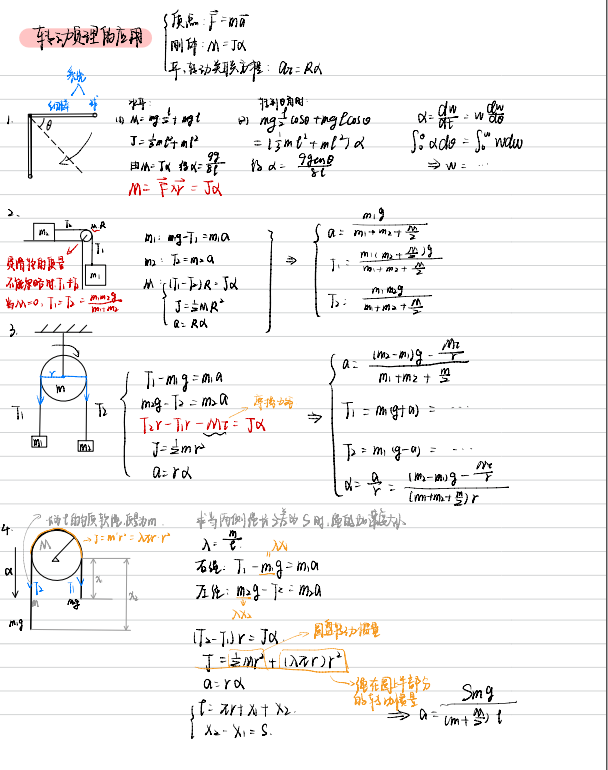 转动定理的应用
质点: F = ma
刚体: M = Jα
平、转动关联方程: aτ = Rα
1.
系统
细棒 球
θ
水平:
(1) M = mg l/2 + mgl
J = 1/3 ml² + ml²
由M = Jα 得 α = 9g/8l
M = F × r = Jα
转到θ角时:
(2) mg l/2 cosθ + mgl cosθ
= (1/3 ml² + ml²) α
得 α = 9g cosθ/8l
α = dw/dt = w dw/dθ
∫₀^θ α dθ = ∫₀^w w dw
⇒ w = ...
2.
m₂ T₂ M, R
T₁
m₁
不能忽略时 T₁ ≠ T₂
当M = 0, T₁ = T₂ = m₁m₂g/m₁+m₂
m₁: mg - T₁ = m₁a
m₂: T₂ = m₂a
M: (T₁ - T₂) R = Jα
J = 1/2 MR²
a = Rα
⇒
a = m₁g / m₁ + m₂ + M/2
T₁ = m₁(m₂ + M/2)g / m₁ + m₂ + M/2
T₂ = m₁m₂g / m₁ + m₂ + M/2
3.
r
m
T₁ T₂
m₁ m₂
T₁ - m₁g = m₁a
m₂g - T₂ = m₂a
T₂r - T₁r - Mτ = Jα
摩擦力矩
J = 1/2 mr²
a = rα
⇒
a = (m₂ - m₁)g - Mτ/r / m₁ + m₂ + m/2
T₁ = m₁(g + a) = ...
T₂ = m₁(g - a) = ...
α = a/r = (m₂ - m₁)g - Mτ/r / (m₁ + m₂ + m/2) r
4.
长为l的质软绳, 质为m.
J = m'r² = λπr·r²
M
a
T₂ T₁
m m₂g
m₁g
x₁
x₂
求当两侧绳长之差为S时, 绳的加速度大小
λ = m/l
λx₁
右绳: T₁ - m₁g = m₁a
左绳: m₂g - T₂ = m₂a
λx₂
(T₂ - T₁) r = Jα
圆盘转动惯量
J = 1/2 Mr² + (λπr) r²
绳在圆上半部分
的转动惯量
a = rα
l = πr + x₁ + x₂
x₂ - x₁ = S.
⇒ a = Smg / (m + M/2) l